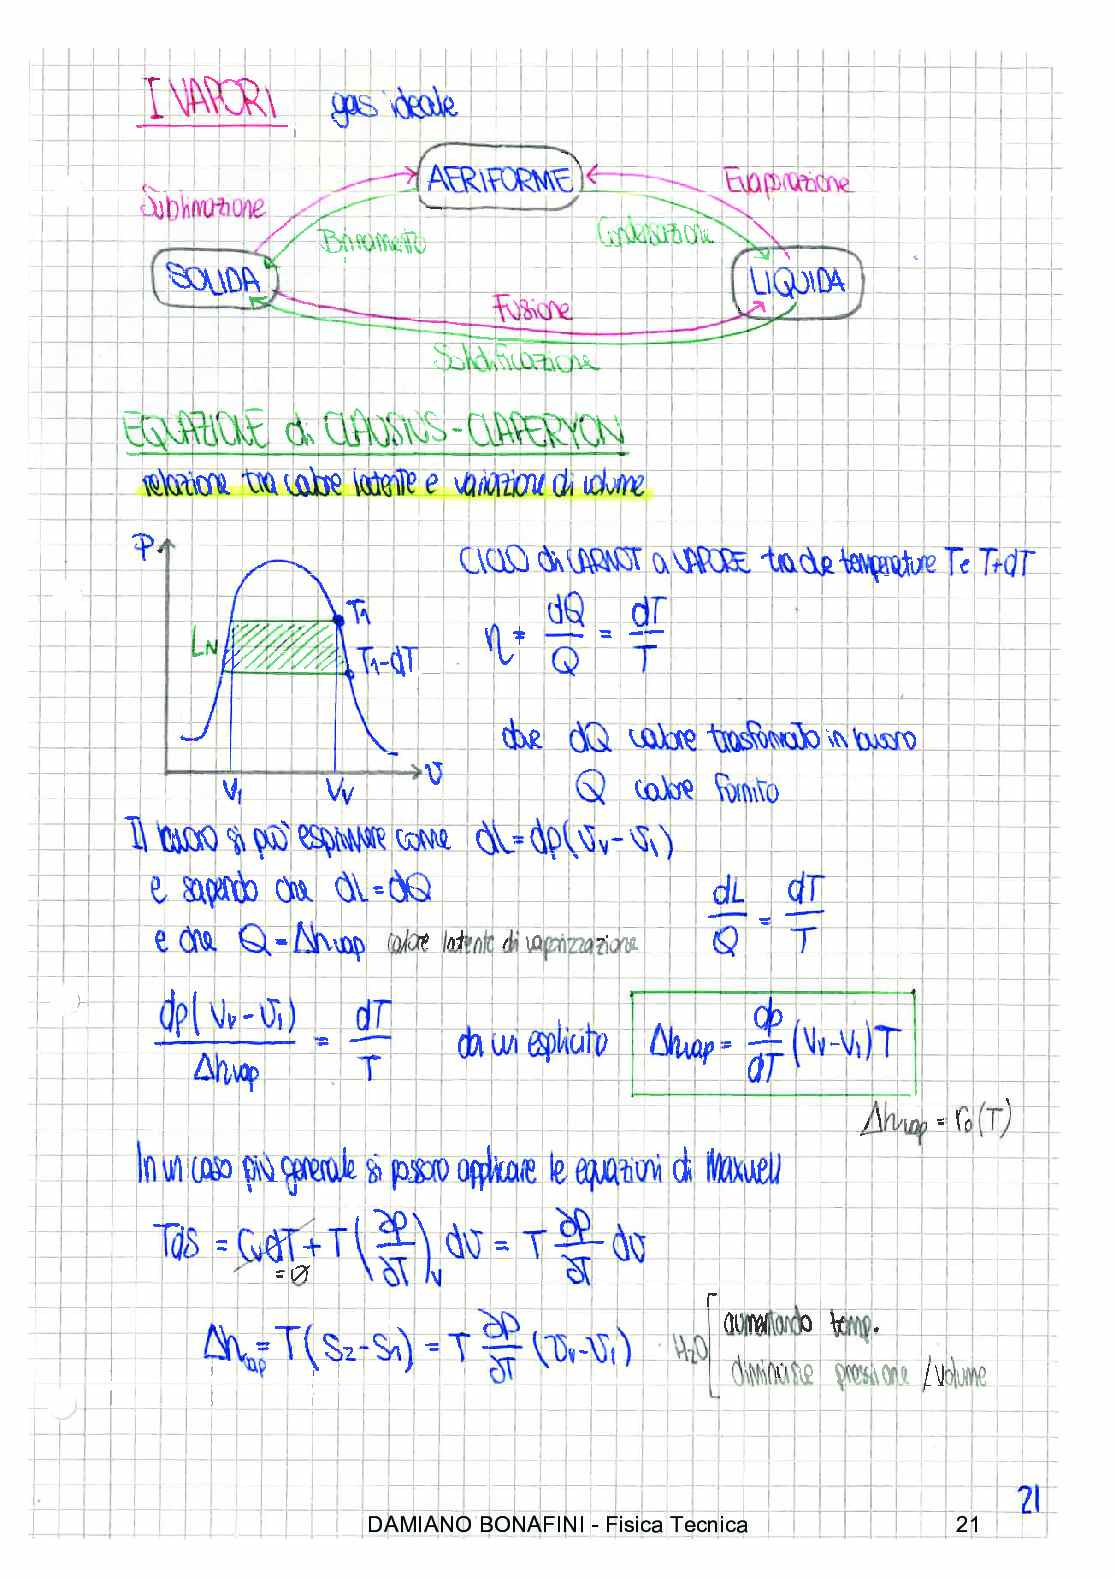 I VAPORI gas ideale
AERIFORME
Sublimazione
Evaporazione
Brinamento
Condensazione
SOLIDA
LIQUIDA
Fusione
Solidificazione
EQUAZIONE di CLAUSIUS-CLAPERYON
relazione tra calore latente e variazioni di volume
P
CICLO di CARNOT a VAPORE tra due temperature T e T+dT
T1
LN
η = dQ/Q = dT/T
T1-dT
dove dQ calore trasformato in lavoro
V1 Vv v
Q calore fornito
Il lavoro si può esprimere come dL=dp(vv-v1)
e sapendo che dL=dQ
dL/Q = dT/T
e che Q=Δhvap calore latente di vaporizzazione
dp(Vv-v1)/Δhvap = dT/T da cui esplicito Δhvap = dp/dT (Vv-V1)T
Δhvap = r0(T)
In un caso più generale si possono applicare le equazioni di Maxwell
Tds = CvdT + T(∂p/∂T)v dv = T ∂p/∂T dv
=0
Δhvap = T(S2-S1) = T ∂p/∂T (vv-v1)
H2O
aumentando temp.
diminuisce pressione/volume
21
DAMIANO BONAFINI - Fisica Tecnica 21